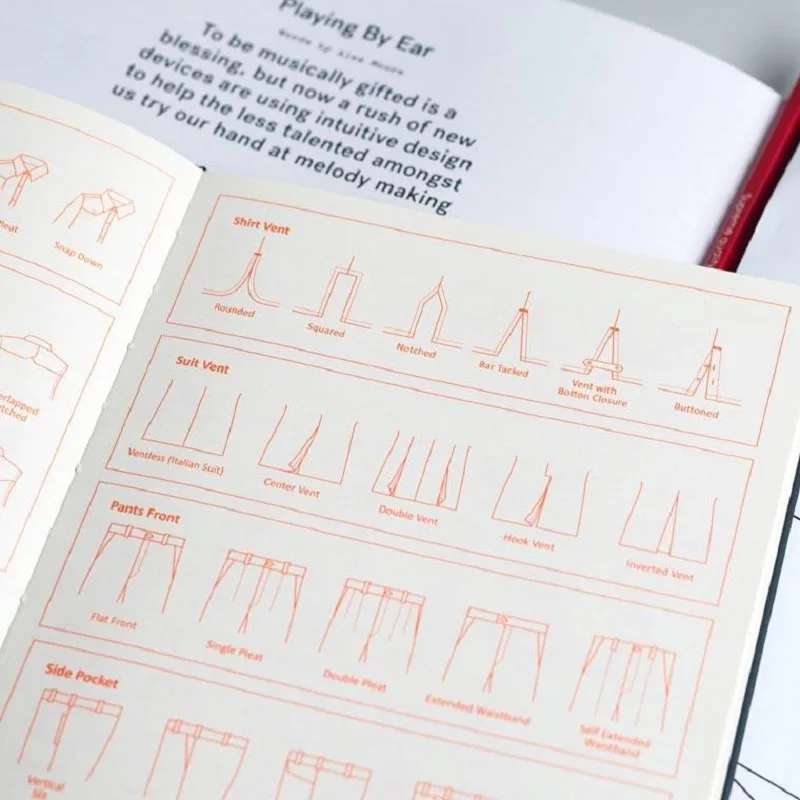 Playing By Ear
Words by Alex Moore
To be musically gifted is a
blessing, but now a rush of new
devices are using intuitive design
to help the less talented amongst
us try our hand at melody making
Pleat
Snap Down
Shirt Vent
Rounded
Squared
Notched
Bar Tacked
Vent with
Botton Closure
Buttoned
Suit Vent
Ventless (Italian Suit)
Center Vent
Double Vent
Hook Vent
Inverted Vent
Pants Front
Flat Front
Single Pleat
Double Pleat
Extended Waistband
Self Extended
Waistband
Side Pocket
Vertical
Slit